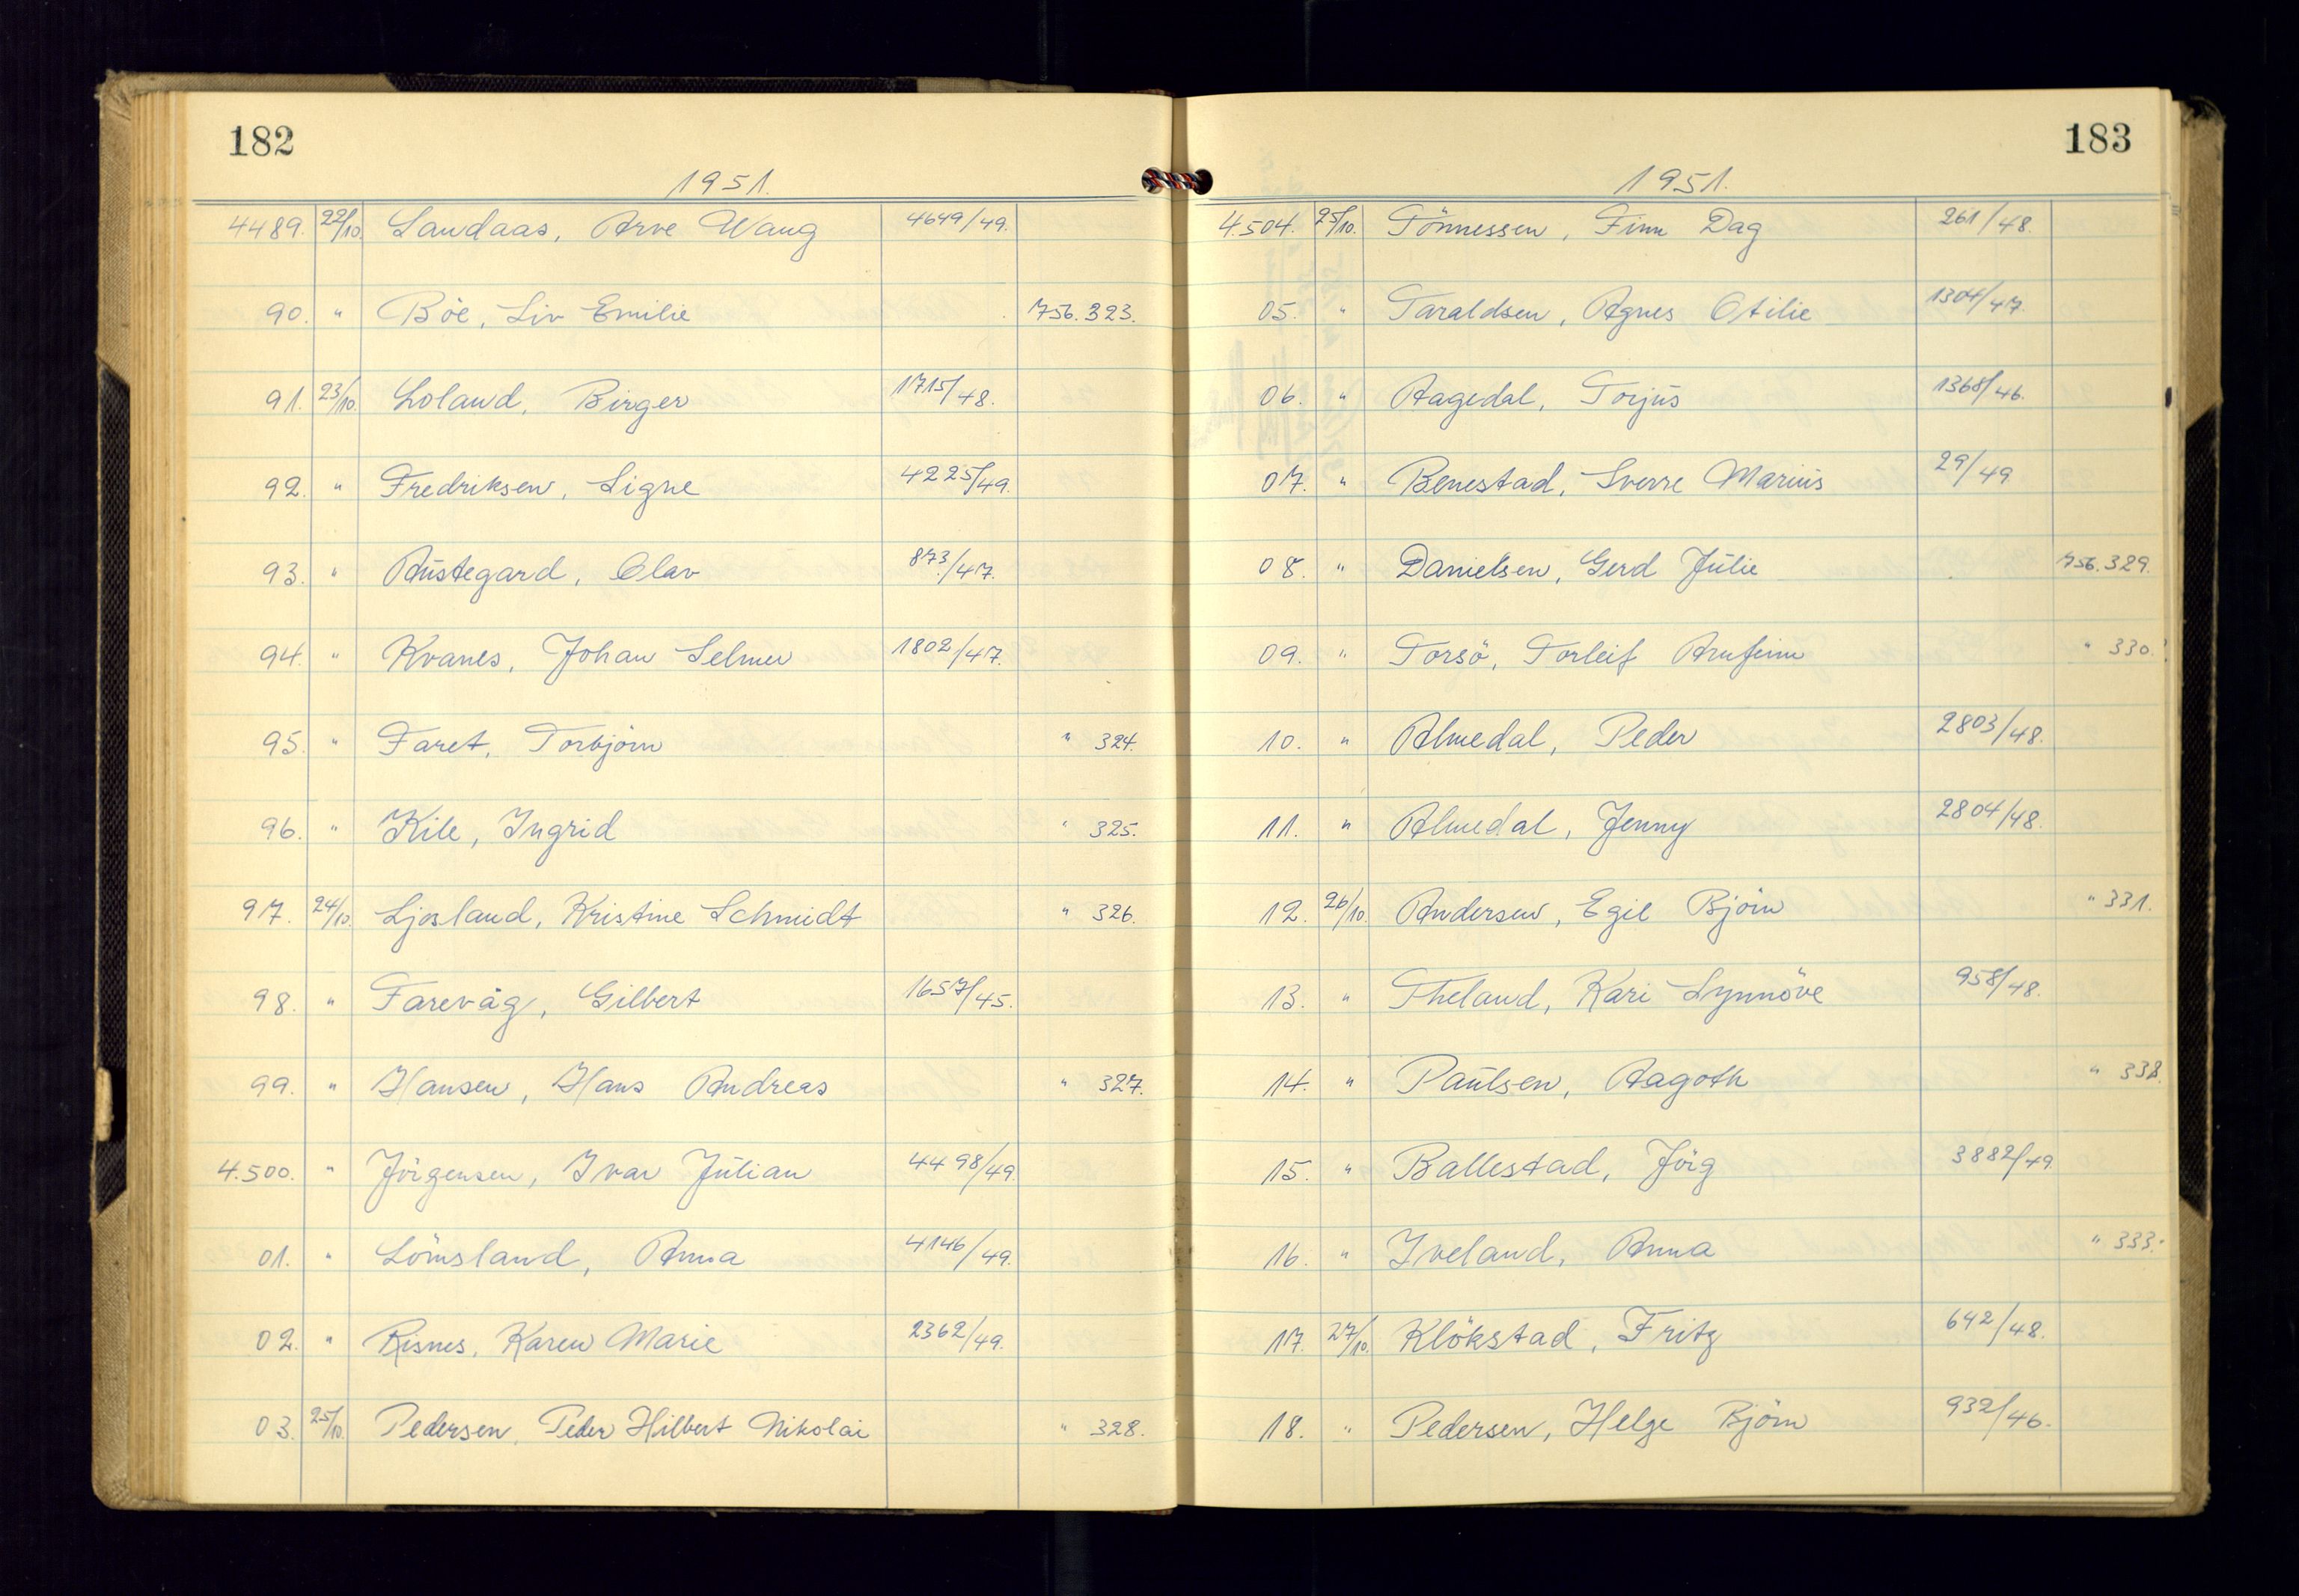 182
1951.
4489. 22/10. Landaas, Arve Wang 4649/49.
90. " Böe, Liv Emilie 756.323.
91. 23/10. Loland, Birger 1715/48.
92. " Fredriksen, Signe 4225/49.
93. " Austegard, Olav 873/47.
94. " Kvanes, Johan Selmer 1802/47.
95. " Faret, Torbjörn " 324.
96. " Kile, Ingrid " 325.
97. 24/10. Ljosland, Kristine Schmidt " 326.
98. " Farevåg, Gilbert 1657/45.
99. " Hansen, Hans Andreas " 327.
4.500. " Jörgensen, Ivar Julian 4498/49.
01. " Lömsland, Anna 4146/49.
02. " Risnes, Karen Marie 2362/49.
03. 25/10. Pedersen, Peder Hilbert Nikolai " 328.
183
1951.
4.504. 25/10. Tönnessen, Finn Dag 261/48.
05. " Taraldsen, Agnes Otilie 1304/47.
06. " Aagedal, Torjus 1368/46.
07. " Benestad, Sverre Marius 29/49
08. " Danielsen, Gerd Julie 756.329.
09. " Torsö, Torleif Arnfinn " 330.
10. " Almedal, Peder 2803/48.
11. " Almedal, Jenny 2804/48.
12. 26/10. Andersen, Egil Björn " 331.
13. " Theland, Kari Synnöve 958/48.
14. " Paulsen, Aagoth " 332.
15. " Ballestad, Jörg 3882/49.
16. " Iveland, Anna " 333.
17. 27/10. Klökstad, Fritz 642/48.
18. " Pedersen, Helge Björn 932/46.